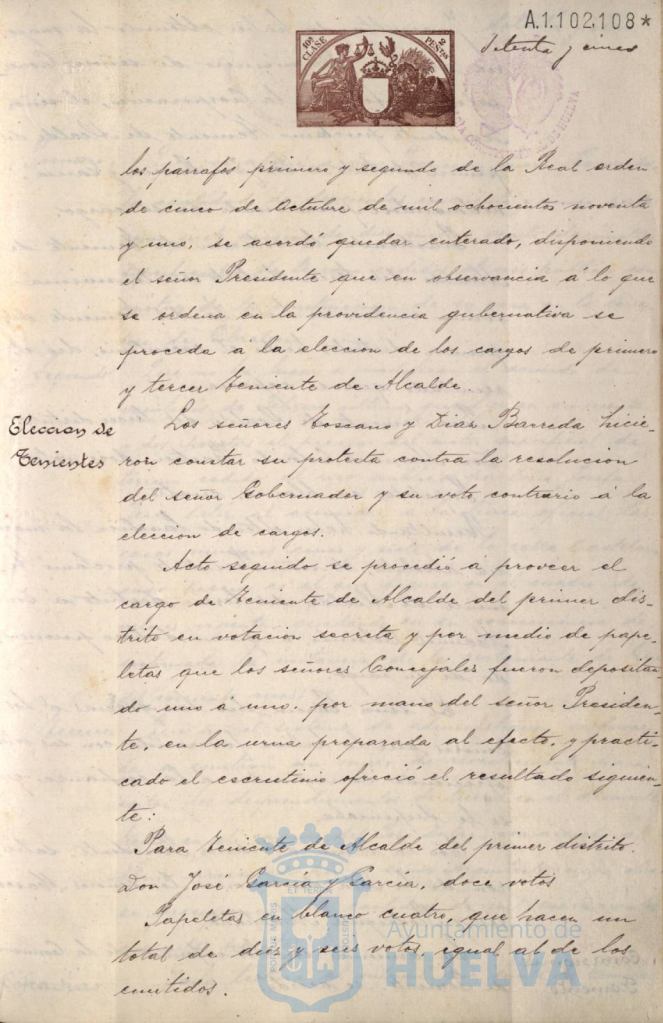 A.1.102.108*
10ª CLASE
2 PESETAS
Setenta y cinco
los párrafos primero y segundo de la Real orden
de cinco de Octubre de mil ochocientos noventa
y uno, se acordó quedar enterado, disponiendo
el señor Presidente que en observancia á lo que
se ordena en la providencia gubernativa se
proceda á la eleccion de los cargos de primero
y tercer Teniente de Alcalde.
Eleccion de
Tenientes
Los señores Toscano y Diaz Barreda hicie-
ron constar su protesta contra la resolucion
del señor Gobernador y su voto contrario á la
eleccion de cargos.
Acto seguido se procedió á proveer el
cargo de Teniente de Alcalde del primer dis-
trito en votacion secreta y por medio de pape-
letas que los señores Concejales fueron depositan-
do uno á uno, por mano del señor Presiden-
te, en la urna preparada al efecto, y practi-
cado el escrutinio ofreció el resultado siguien-
te:
Para Teniente de Alcalde del primer distrito.
Don José García y García, doce votos
Papeletas en blanco cuatro, que hacen un
total de diez y seis votos, igual al de los
emitidos.
Ayuntamiento de
HUELVA